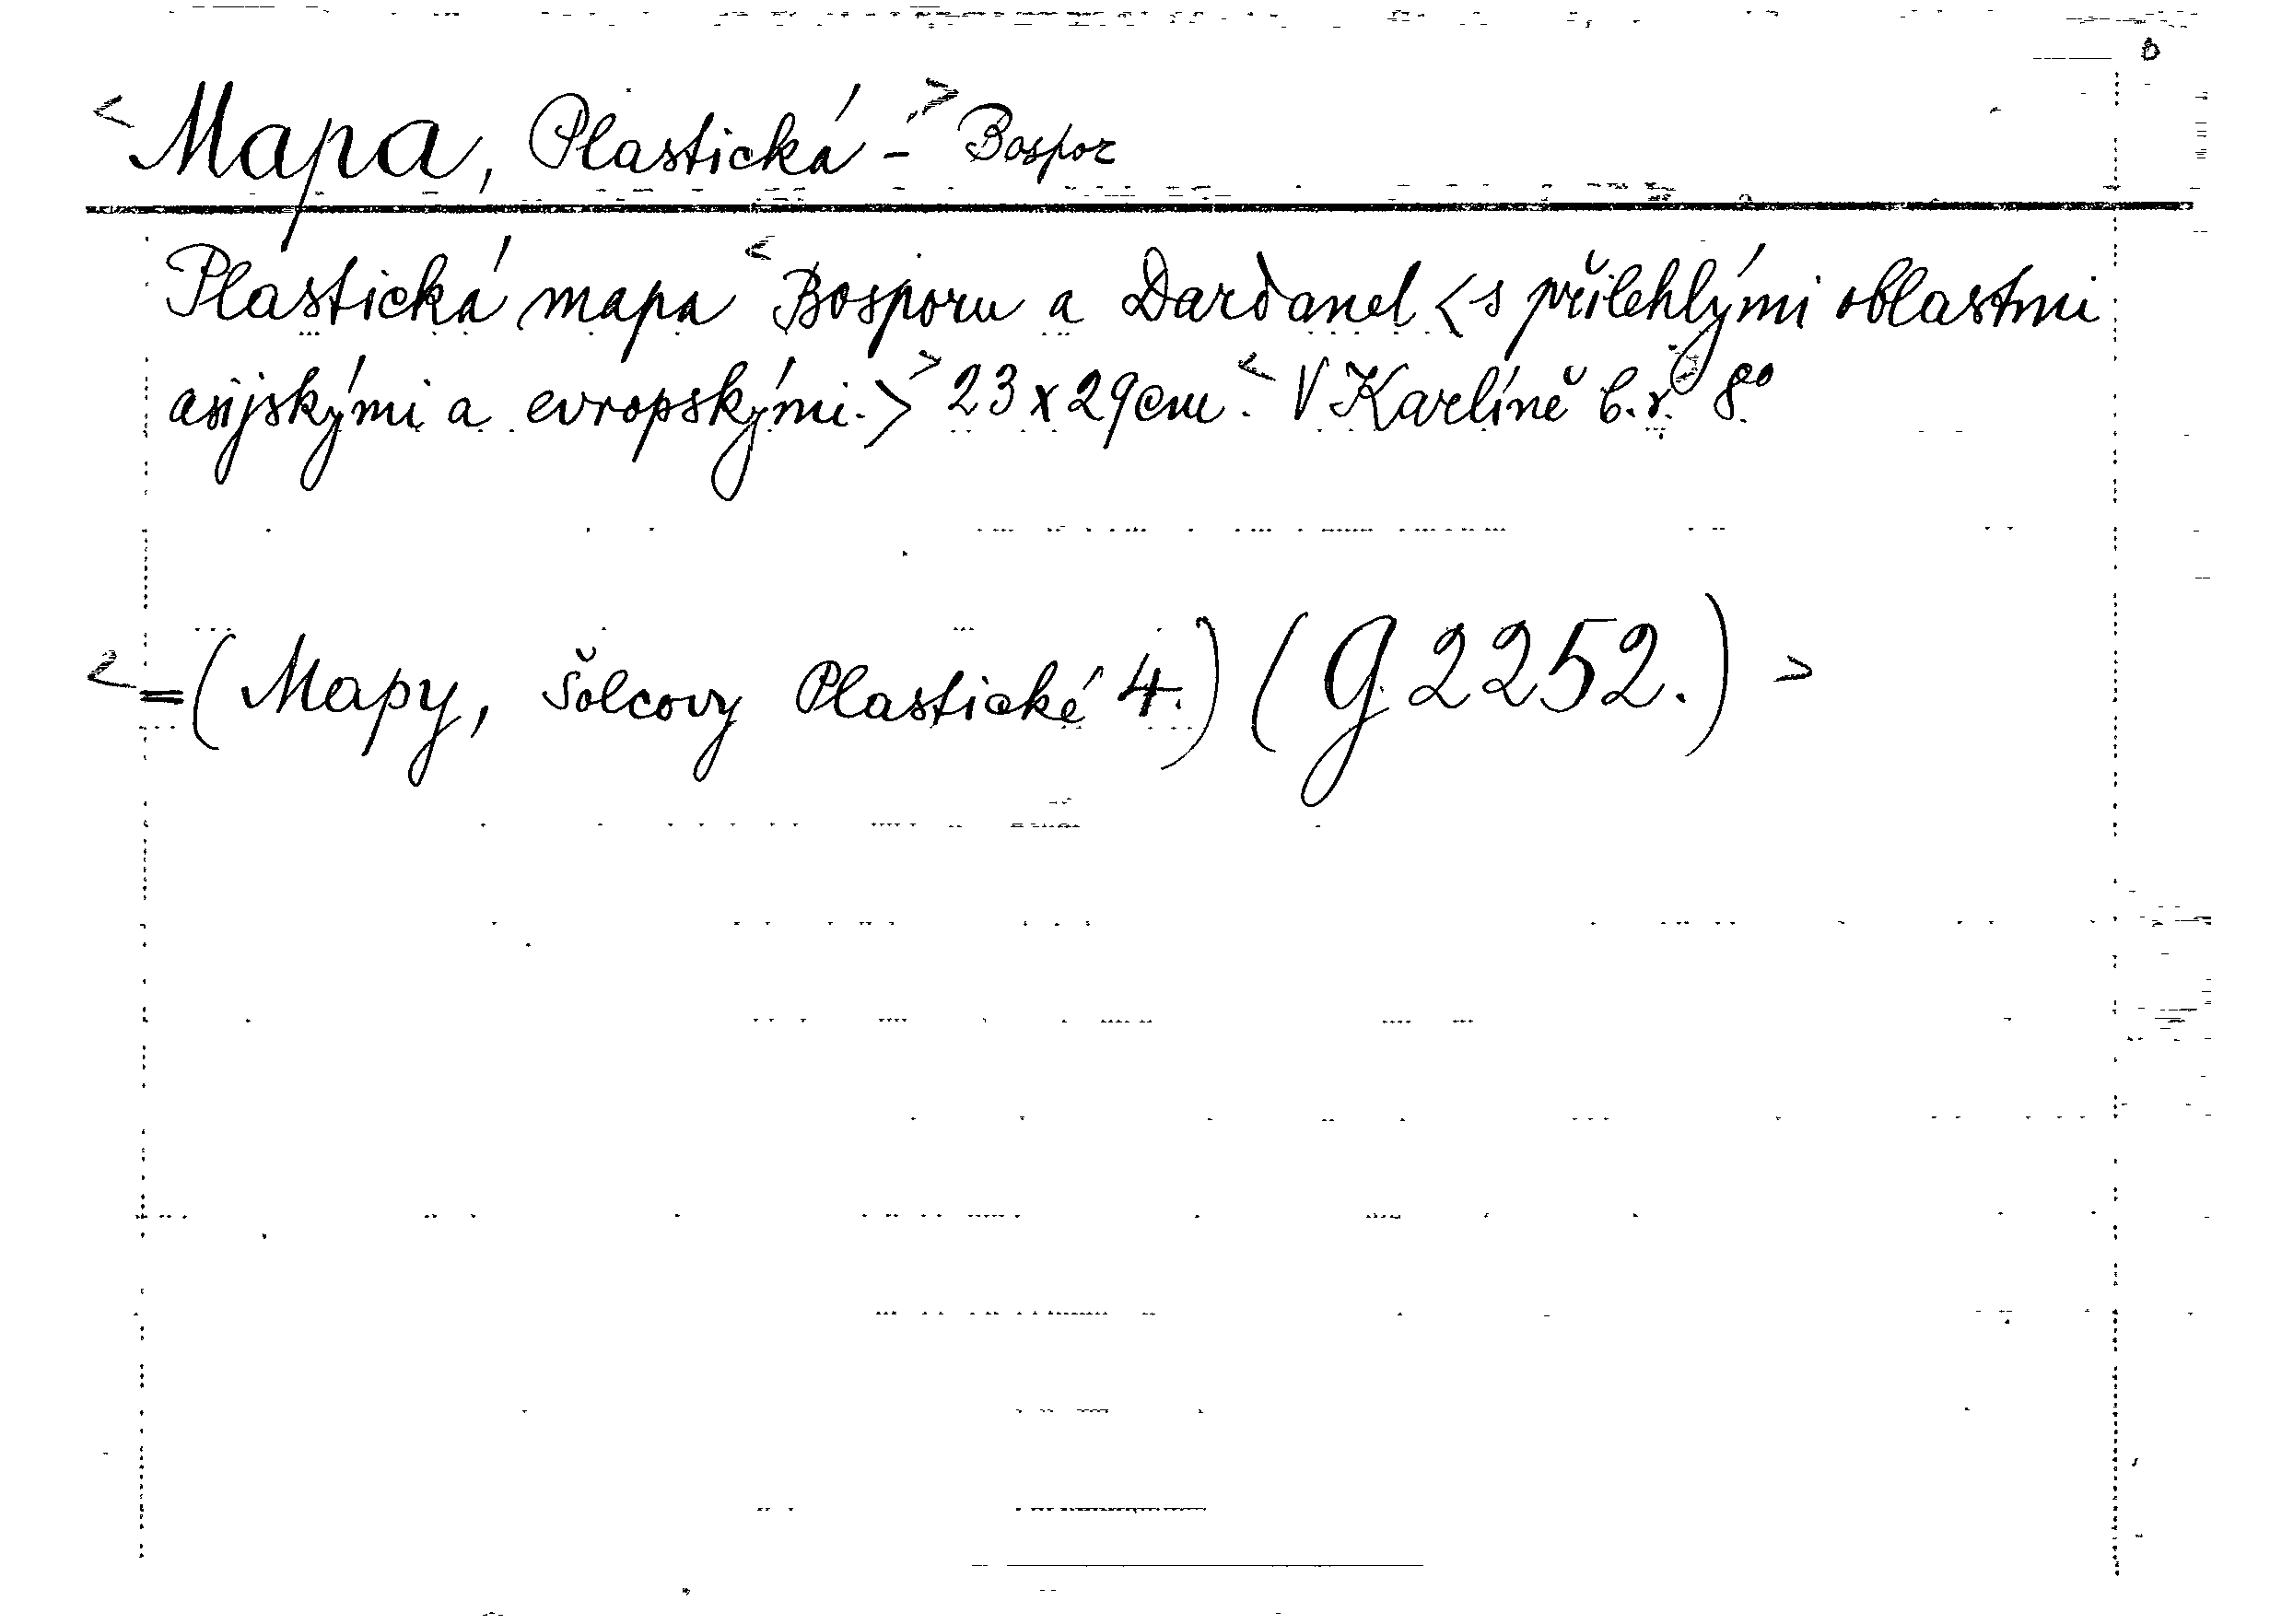 <Mapa, Plastická -> Bospor
Plastická mapa <Bosporu a Dardanel <s přilehlými oblastmi
asijskými a evropskými.>> 23 x 29 cm <V Karlíně b. r. 8°
<=(Mapy, Šolcovy Plastické 4.) (G 2252.) >